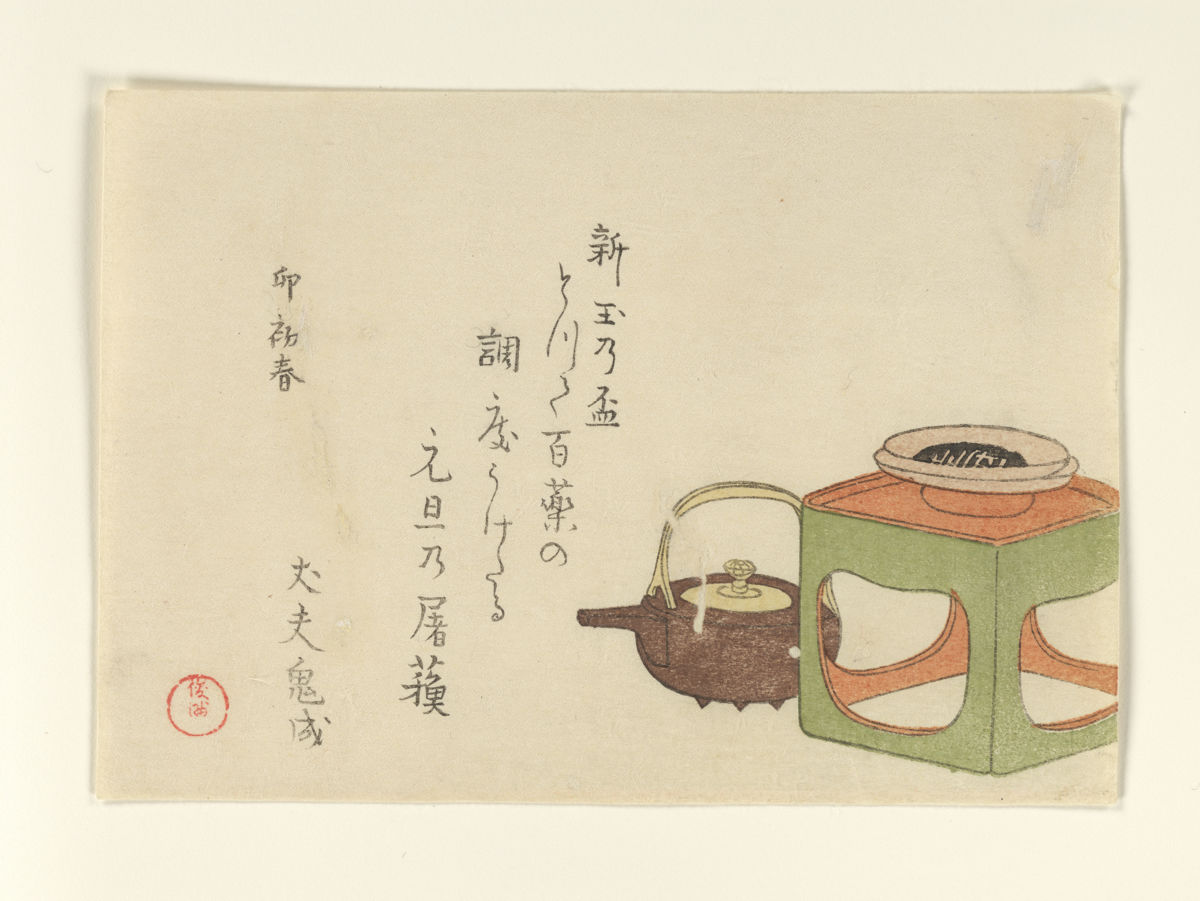 新玉乃盃
とりつく百薬の
調度うけたる
元旦乃屠蘓
卯初春
大夫鬼成
俊満